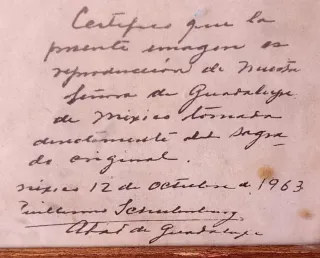 Certifico que la
presente imagen es
reproducción de Nuestra
Señora de Guadalupe
de México tomada
directamente del sagra-
do original.
México 12 de octubre de 1963
Guillermo Schulenburg
Abad de Guadalupe